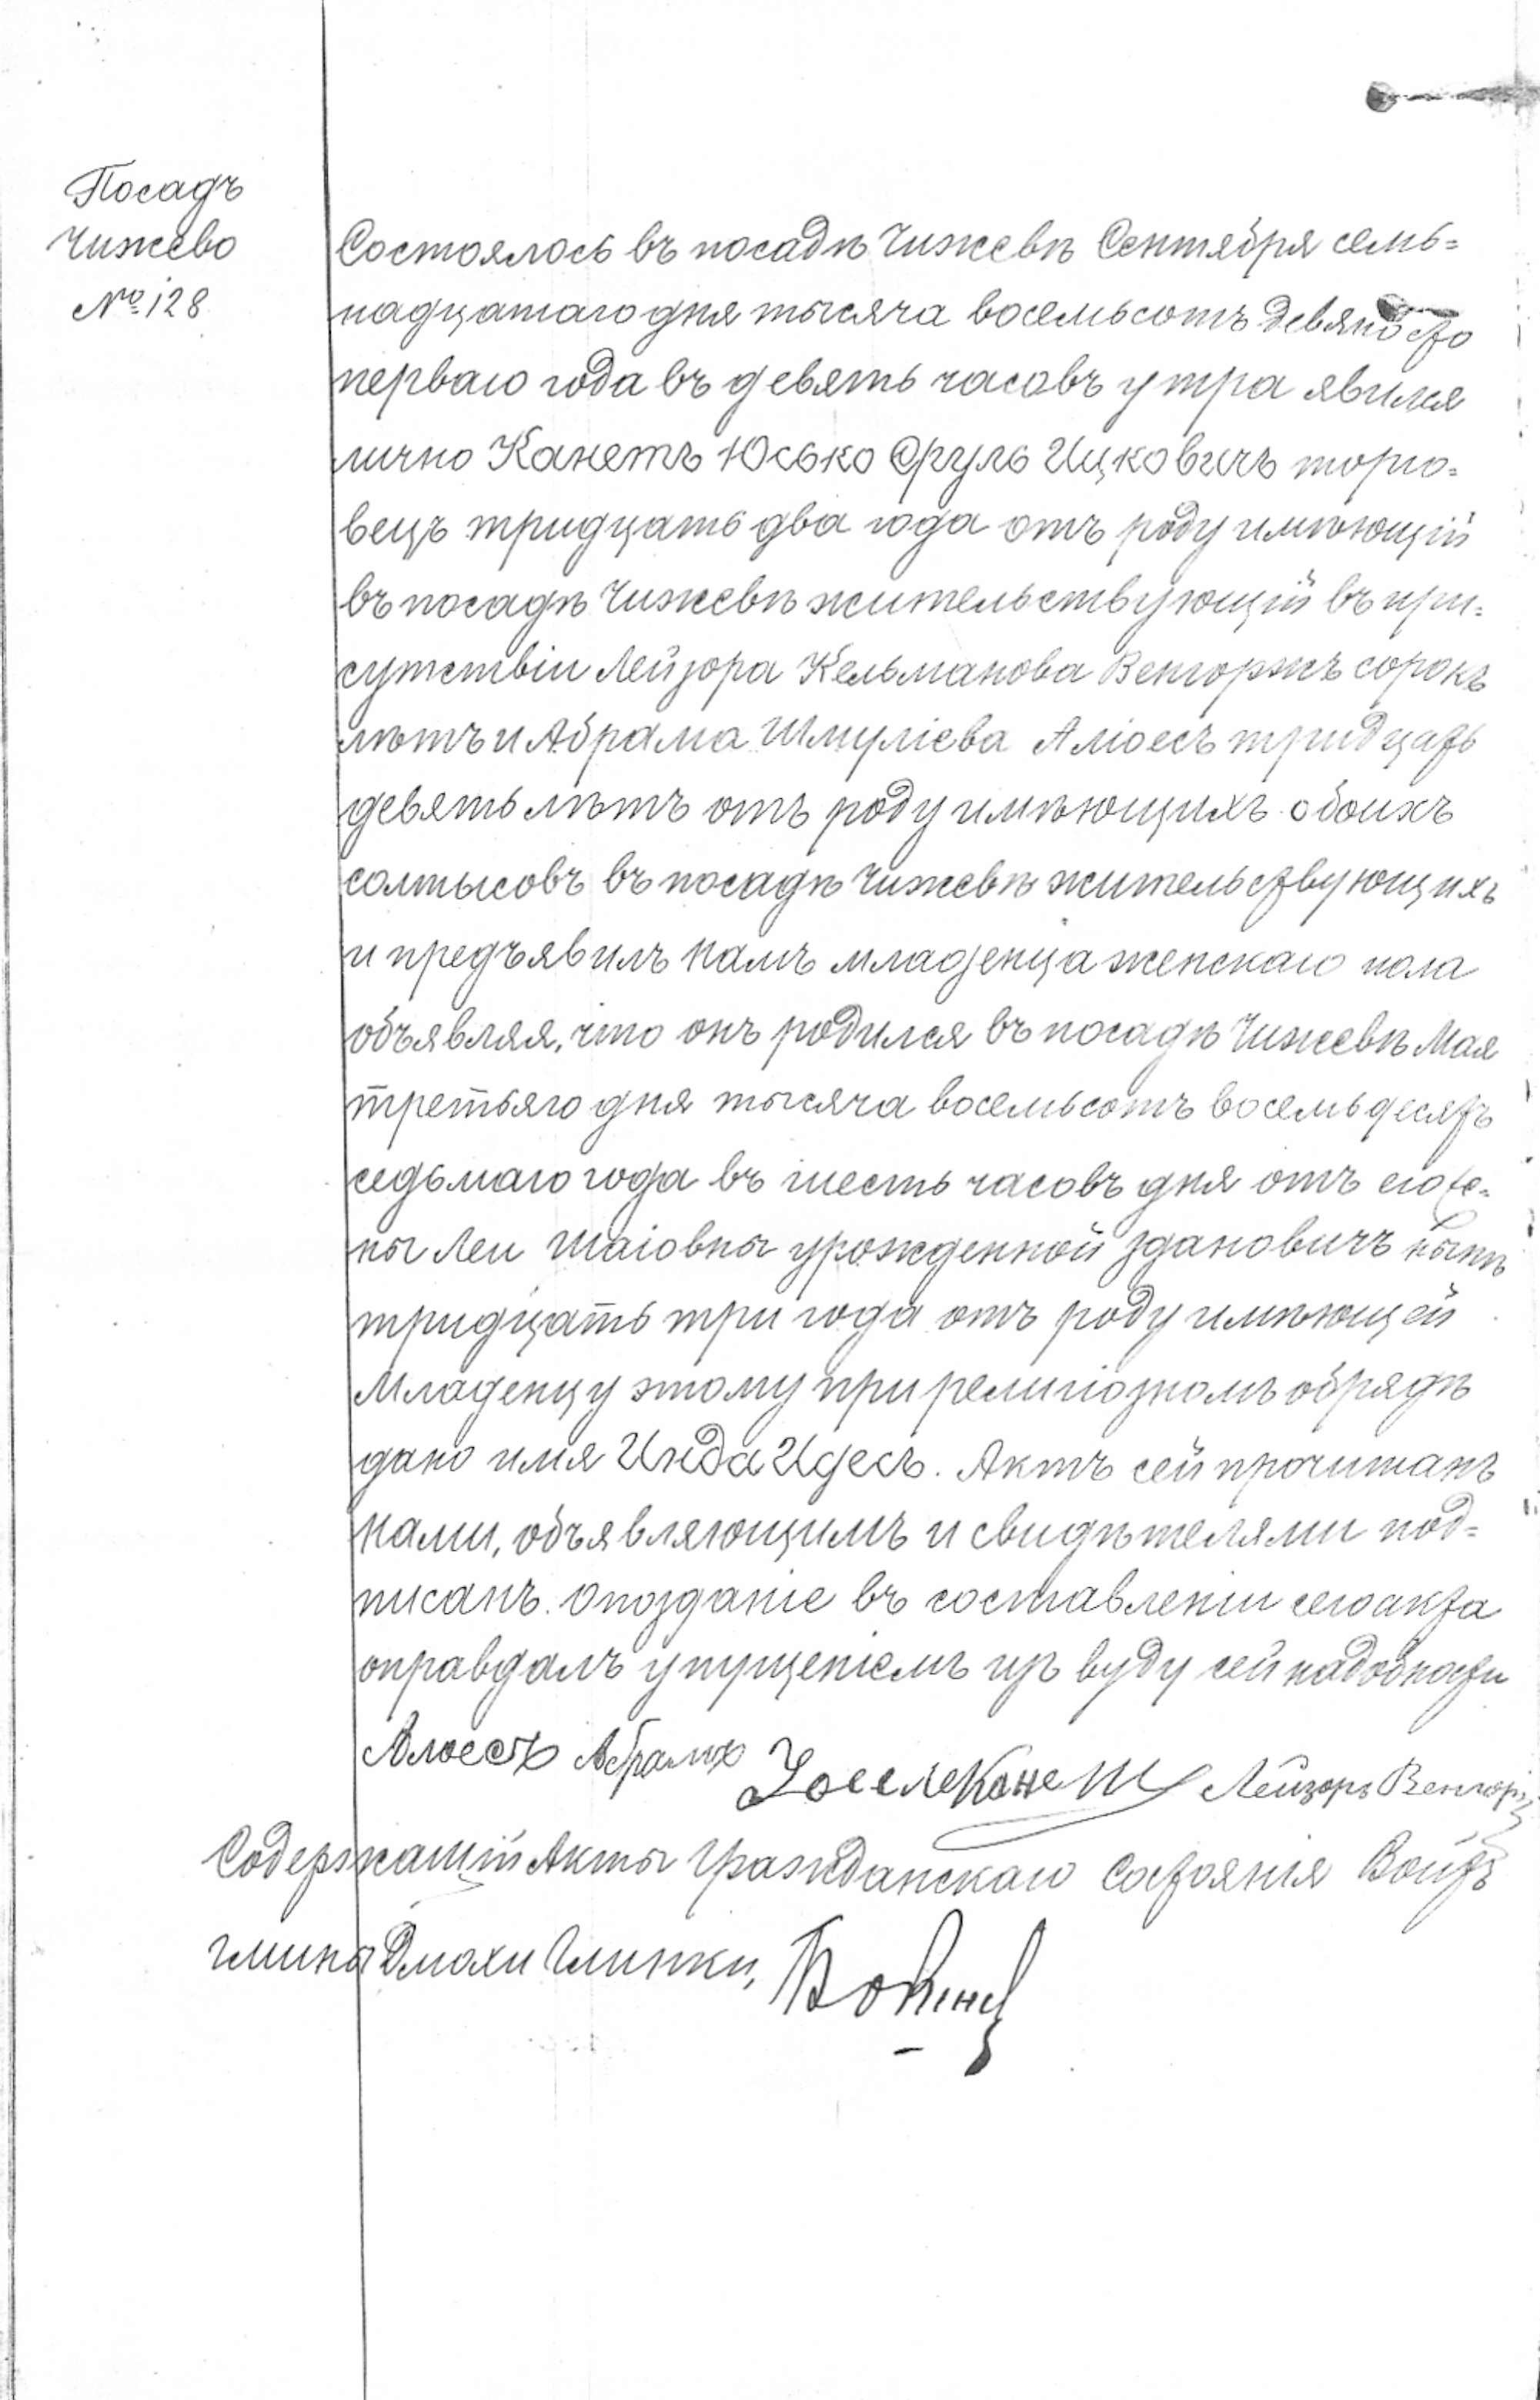 Посадъ
Чижево
№ 128
Состоялось въ посадѣ Чижевѣ Сентября семь=
надцатаго дня тысяча восемьсотъ девяносто
перваго года въ девять часовъ утра явился
лично Канетъ Юсько Сруль Ицковичъ торго=
вецъ тридцать два года отъ роду имѣющій
въ посадѣ Чижевѣ жительствующій въ при=
сутствіи Лейзора Кельманова Венгоржъ сорокъ
лѣтъ и Абрама Шмуліева Алюесъ тридцать
девять лѣтъ отъ роду имѣющихъ обоихъ
солтысовъ въ посадѣ Чижевѣ жительствующихъ
и предъявилъ намъ младенца женскаго пола
объявляя, что онъ родился въ посадѣ Чижевѣ Мая
третьяго дня тысяча восемьсотъ восемьдесятъ
седьмаго года въ шесть часовъ дня отъ его же=
ны Леи Шаіовны урожденной Здановичъ нынѣ
тридцать три года отъ роду имѣющей
Младенцу этому при религіозномъ обрядѣ
дано имя Инда Идесъ. Актъ сей прочитанъ
нами, объявляющимъ и свидѣтелями под=
писанъ. Опозданіе въ составленіи сего акта
оправдалъ упущеніемъ изъ виду сей надобности
Алюесъ Абрамъ Канетъ Лейзоръ Венгорж
Содержащій Акты Гражданскаго Состоянія Войтъ
гмины Дмохи Глинки,